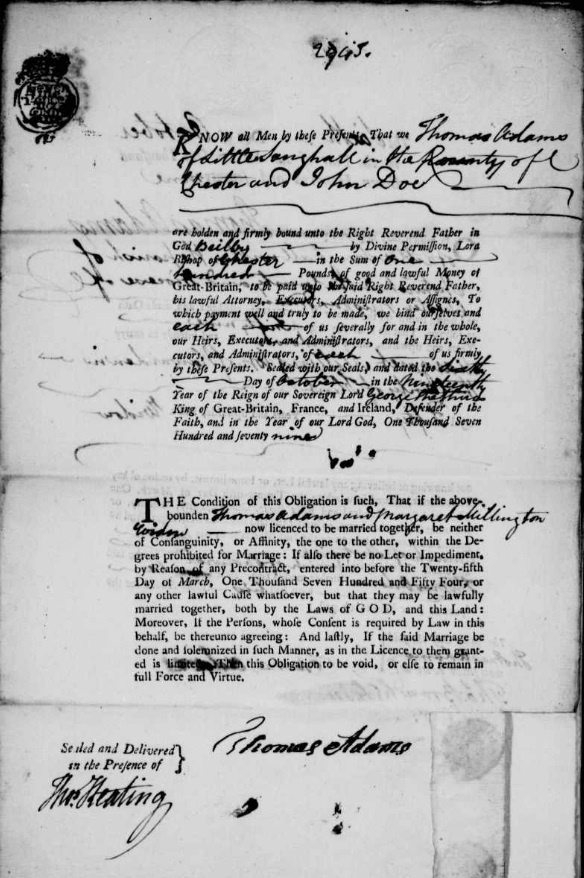 KNOW all Men by these Presents, That we Thomas Adams
of Little Saughall in the County of
Chester and John Doe
are holden and firmly bound unto the Right Reverend Father in
God Beilby by Divine Permission, Lord
Bishop of Chester in the Sum of One
hundred Pounds of good and lawful Money of
Great-Britain, to be paid unto the said Right Reverend Father,
his lawful Attorney, Executors, Administrators or Assigns, To
which payment well and truly to be made, we bind ourselves and
each of us severally for and in the whole,
our Heirs, Executors, and Administrators, and the Heirs, Exe-
cutors, and Administrators, of each of us firmly
by these Presents. Sealed with our Seals, and dated the
Day of October in the Nineteenth
Year of the Reign of our Sovereign Lord George the third
King of Great-Britain, France, and Ireland, Defender of the
Faith, and in the Year of our Lord God, One Thousand Seven
Hundred and seventy nine
THE Condition of this Obligation is such, That if the above-
bounden Thomas Adams and Margaret Millington
Widow now licenced to be married together, be neither
of Consanguinity, or Affinity, the one to the other, within the De-
grees prohibited for Marriage: If also there be no Let or Impediment,
by Reason of any Precontract, entered into before the Twenty-fifth
Day of March, One Thousand Seven Hundred and Fifty Four, or
any other lawful Cause whatsoever, but that they may be lawfully
married together, both by the Laws of GOD, and this Land:
Moreover, If the Persons, whose Consent is required by Law in this
behalf, be thereunto agreeing: And lastly, If the said Marriage be
done and solemnized in such Manner, as in the Licence to them grant-
ed is limited, Then this Obligation to be void, or else to remain in
full Force and Virtue.
Sealed and Delivered
in the Presence of
Thomas Adams
Thos. Keating